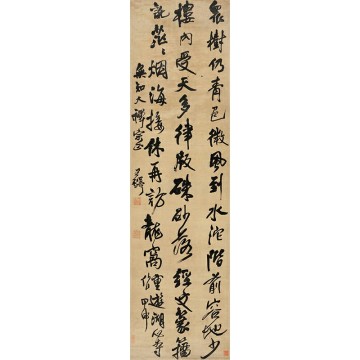 眾樹仍青色微風到水沱階前容地少
樓內受天多律殿硃砂落經文篆籀
訛茫茫烟海接休再訪龍窩遊湖心寺
甲申
無知大禪宗正
王鐸